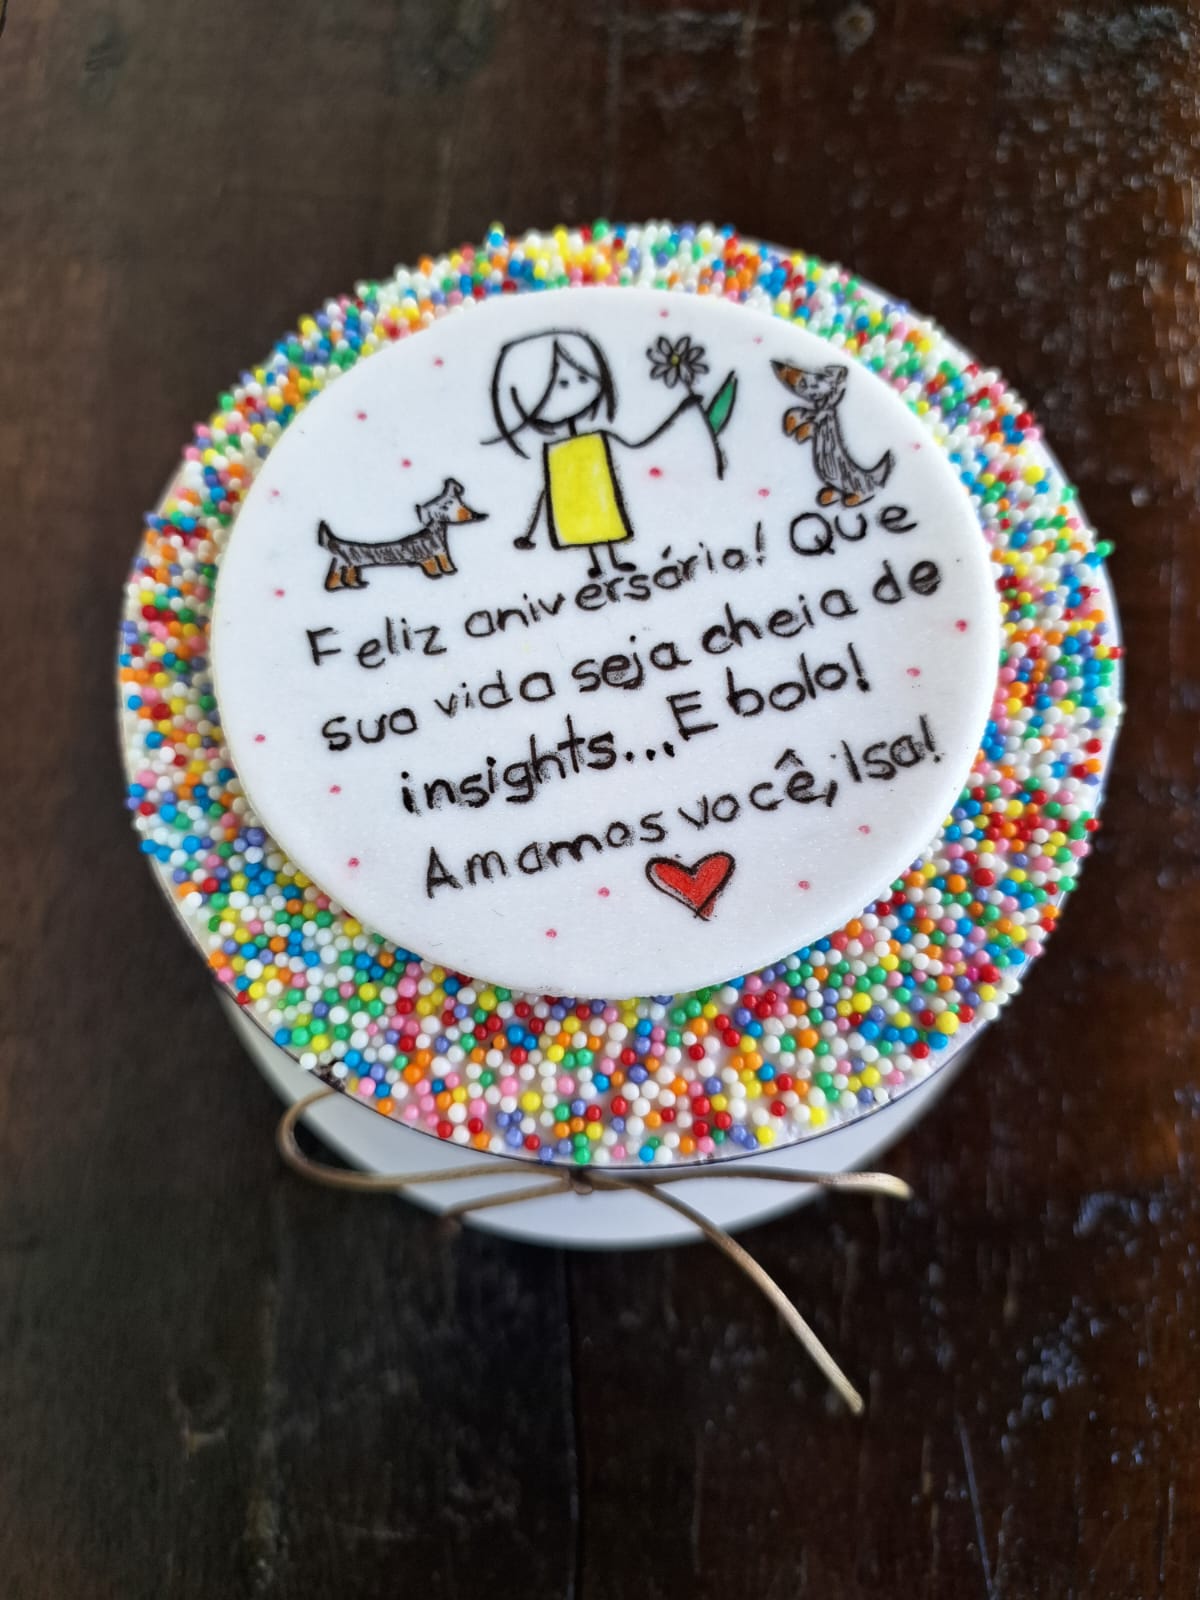 Feliz aniversário! Que
sua vida seja cheia de
insights...E bolo!
Amamos você, Isa!